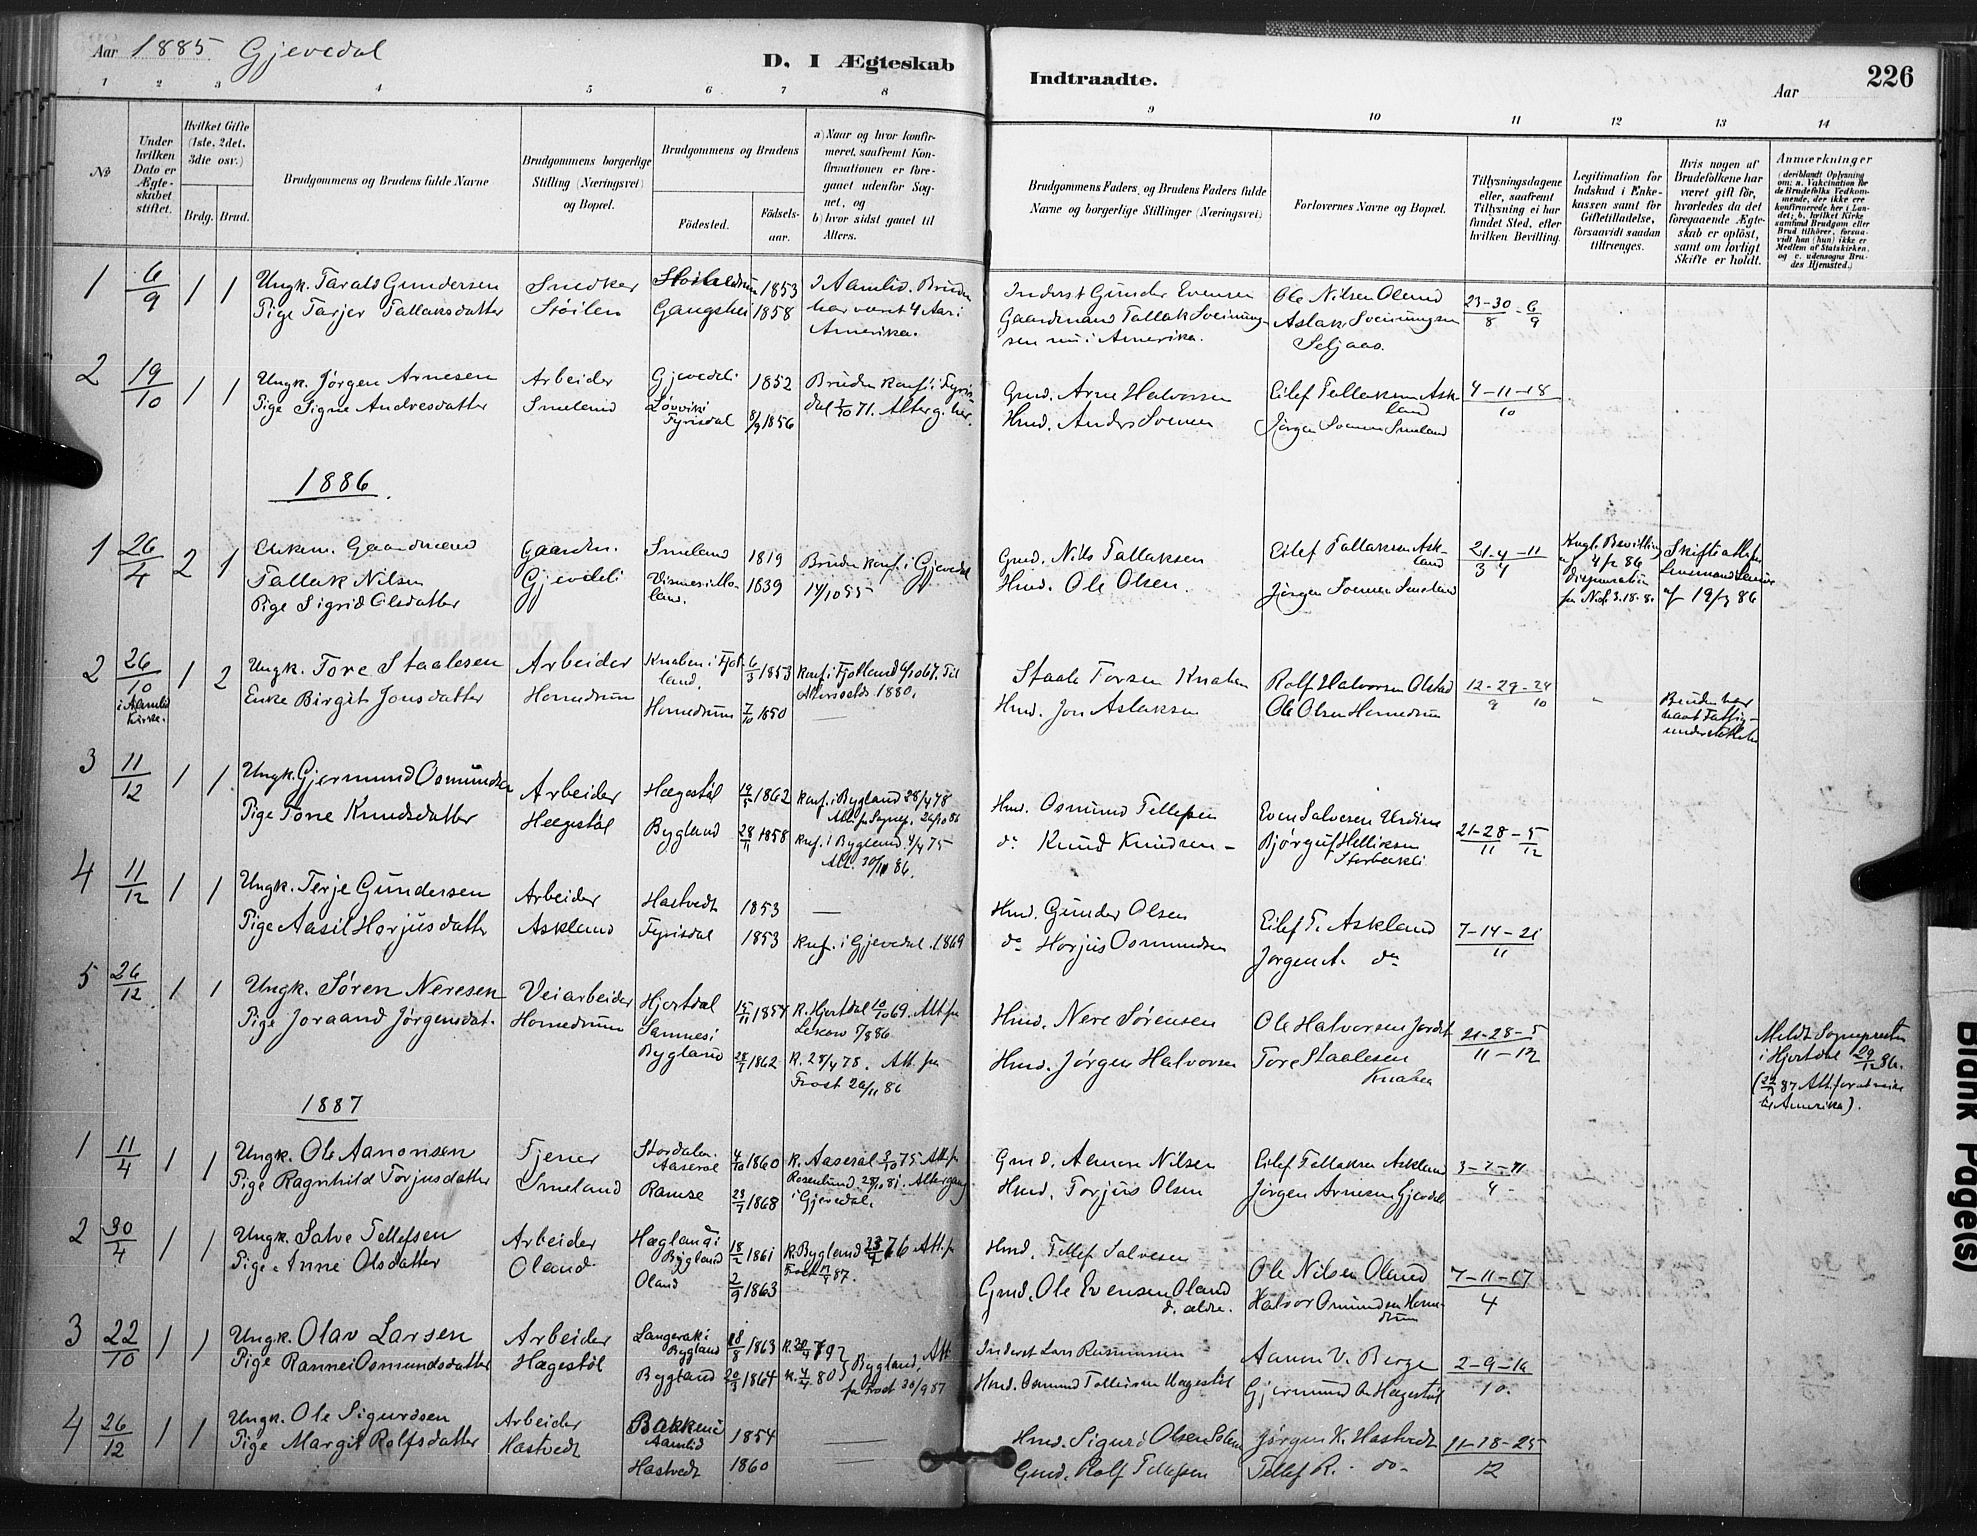 Aar 1885. Gjevedal
D. I Ægteskab
Indtraadte.
Aar
226
1 2 3 4 5 6 7 8
9 10 11 12 13 14
No
Under hvilken Dato er Ægteskabet stiftet.
Hvilket Gifte (1ste, 2det, 3die osv.)
Brdg. Brud.
Brudgommens og Brudens fulde Navne
Brudgommens borgerlige Stilling (Næringsvei) og Bopæl.
Brudgommens og Brudens
Fødested.
Fødselsaar.
a) Naar og hvor konfirmeret, saafremt Konfirmationen er foregaaet udenfor Sognet, og
b) hvor sidst gaaet til Alters.
Brudgommens Faders, og Brudens Faders fulde Navne og borgerlige Stillinger (Næringsvei)
Forlovernes Navne og Bopæl.
Tillysningsdagene eller, saafremt Tillysning ei har fundet Sted, efter hvilken Bevilling.
Legitimation for Indskud i Enkekassen samt for Giftetilladelse, forsaavidt saadan tiltrænges.
Hvis nogen af Brudefolkene har været gift før, hvorledes da det foregaaende Ægteskab er opløst, samt om lovligt Skifte er holdt.
Anmærkninger
(deriblandt Oplysning om: a. Vakcination for de Brudefolks Vedkommende, der ikke ere konfirmerede her i Landet; b. hvilket Kirkesamfund Brudgom eller Brud tilhører, forsaavidt han (hun) ikke er Medlem af Statskirken, og c. udensogns Brudes Hjemsted.)
1 6/9 1 1 Ungk. Tarald Gundersen Snedker 1853 I Aamlid. Bruden Inderst Gunder Evensen Ole Nilsen Oland 23-30/8 - 6/9
Pige Tarjer Tallaksdatter Støilen Gangshei 1858 har været 4 Aar i Gaardmand Tallak Sveinung- Aslak Sveinungsen
Amerika. sen nu i Amerika. Seljaas.
2 19/10 1 1 Ungk. Jørgen Arnesen Arbeider Gjevedeli 1852 Bruden konf. i Fyris- Gmd. Arne Halvorsen Eilef Tallaksen Ask- 4-11-18/10
Pige Signe Andresdatter Smeland Løvvik i Fyrisdal 8/9 1856 dal 1/10 71. Alterg. her. Hmd. Anders Svensen land
Jørgen Svensen Smeland
1886.
1 26/4 2 1 Enkem. Gaardmand Gaardm. Smeland 1819 Bruden konf. i Gjevedal Gmd. Nils Tallaksen Eilef Tallaksen Ask- 21/3 - 4 - 11/4 Kngl. Bevilling Skifteattest fra
Tallak Nilsen Gjevdeli land.
Pige Sigrid Olsdatter 1839 14/10 55 Hmd. Ole Olsen. land Jørgen Svensen Smeland Dispensation af 19/3 86
2 26/10 1 2 Ungk. Tore Staalesen Arbeider Knaben i Fjot- 6/3 1853 Konf. i Fjotland 6/10 67. Til Staale Torsen Knaben Rolf Halvorsen Olstad 12-29/9 - 24/10 Bruden har
i Aamlid Kirke. Enke Birgit Jonsdatter Homedrum land. Altersgelds 1880. Hmd. Jon Aslaksen Ole Olsen Homedrum havt Fattig-
Homedrum 7/10 1850 — understøttelse
3 11/12 1 1 Ungk. Gjermund Osmundsen Arbeider Hægestøl 19/5 1862 Konf. i Bygland 28/4 78 Hmd. Osmund Tellefsen Even Salvesen Urdine 21-28/11 - 5/12
Pige Tone Knudsdatter Hægestøl Bygland 28/11 1858 Att. fra Sognep. 26/10 86 do Knud Knudsen - Bjørguf Helliksen
Knf. i Bygland 4/4 75
Att. 30/10 86.
4 11/12 1 1 Ungk. Terje Gundersen Arbeider Hastvedt 1853 — Hmd. Gunder Olsen Eilef T. Askland 7-14-21/11
Pige Aasil Horjusdatter Askland Fyrisdal 1853 Knf. i Gjevedal. 1869 do Horjus Osmundsen Jørgen A. do
5 26/12 1 1 Ungk. Søren Neresen Veiarbeider Hjertdal 15/11 1854 K. Hjertdal 10/10 69. Att. fra Hmd. Nere Sørensen Ole Halvorsen Jordet 21-28/11 - 5/12 Meldt Sognepresten
Pige Joraand Jørgensdat. Homedrum Sannes i 7/8 86. i Hjertdal 29/12 86.
Bygland 28/7 1862 K. 28/4 78. Att. fra Hmd. Jørgen Halvorsen Tore Staalesen 87 Att. for at reise
Frost 26/11 86 Knaben til Amerika).
1887
1 11/4 1 1 Ungk. Ole Aanonsen Tjener Stordalen. Aaseral 4/10 1860 K. Aaseral 3/10 75. Att. fra Gmd. Aanon Nilsen Eilef Tallaksen Askland 3-7-11/4
Pige Ragnhild Torjusdatter Smeland Ramse 23/7 1868 i Gjevedal. Hmd. Torjus Olsen Jørgen Arnesen Gjevdeli
2 30/4 1 1 Ungk. Salve Tellefsen Arbeider Hægland i Bygland 18/2 1861 K. Bygland 23/4 76 Att. fra Hmd. Tellef Salvesen Ole Nilsen Oland 7-11-17/4
Pige Anne Olsdatter Oland Oland 2/9 1863 Frost 87. Gmd. Ole Evensen Oland d. ældre. Halvor Osmundsen Homedrum
3 22/10 1 1 Ungk. Olav Larsen Arbeider Langerak i Bygland 18/8 1863 K. 79 Bygland. Att. Inderst Lars Rasmussen Aanon V. Berge 2-9-16/10
Pige Rannei Osmundsdatter Hægestøl Bygland 20/3 1864 K. 4/4 80 fra Frost 30/9 87 Hmd. Osmund Tellefsen Hægestøl Gjermund O. Hægestøl
4 26/12 1 1 Ungk. Ole Sigurdsen Arbeider Bakken i Aamlid 1854 — Hmd. Sigurd Olsen Jørgen K. Hastvedt 11-18-25/12
Pige Margit Rolfsdatter Hastvedt Hastvedt 1860 — Gmd. Rolf Tellefsen Tellef R. do-
Blank Page(s)